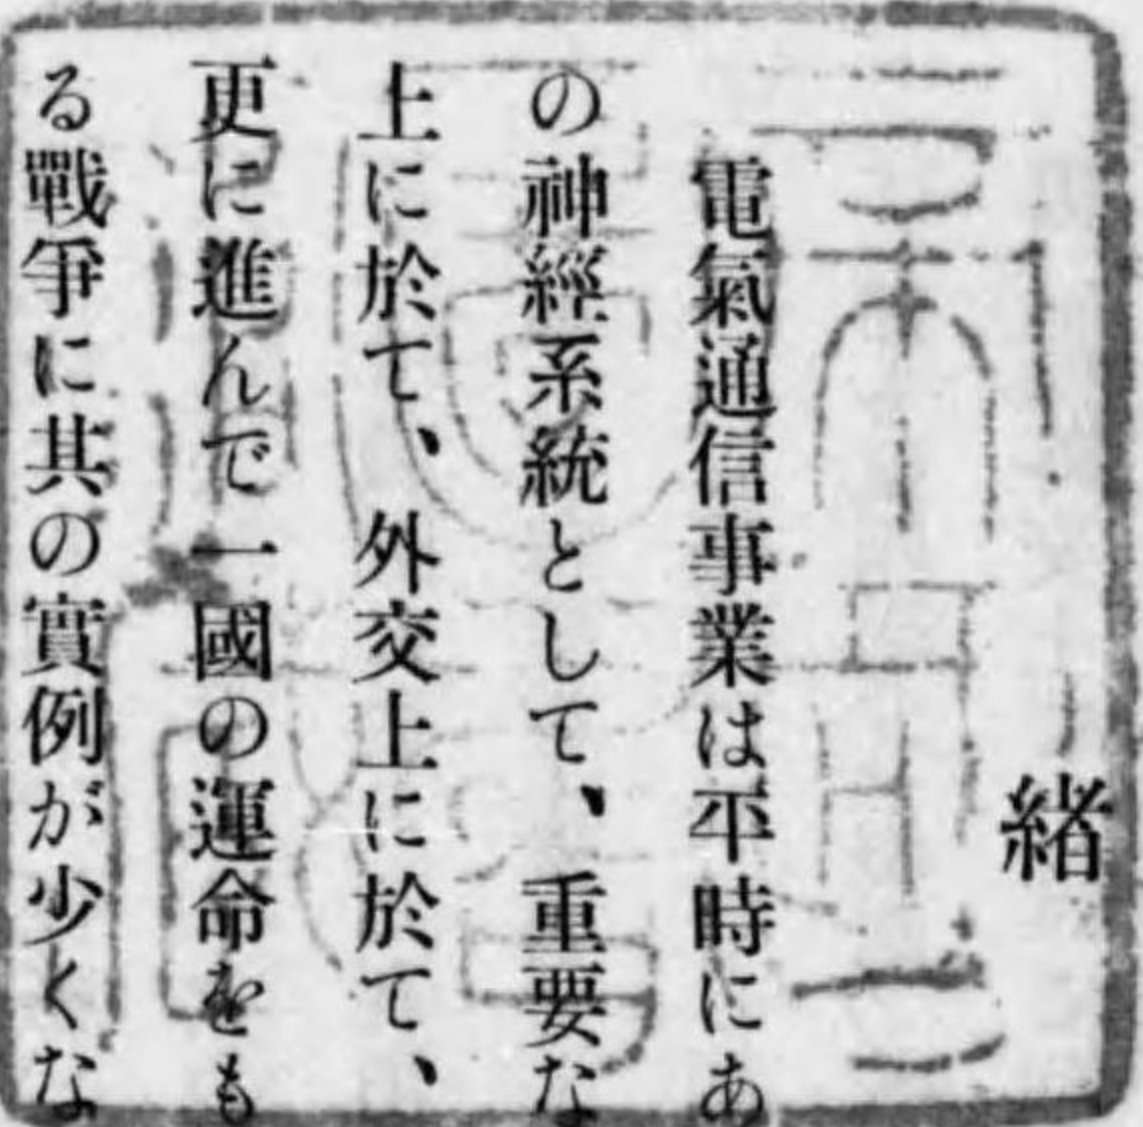 緒
電氣通信事業は平時にあ
の神經系統として、重要な
上に於て、外交上に於て、
更に進んで一國の運命をも
る戰爭に其の實例が少くな